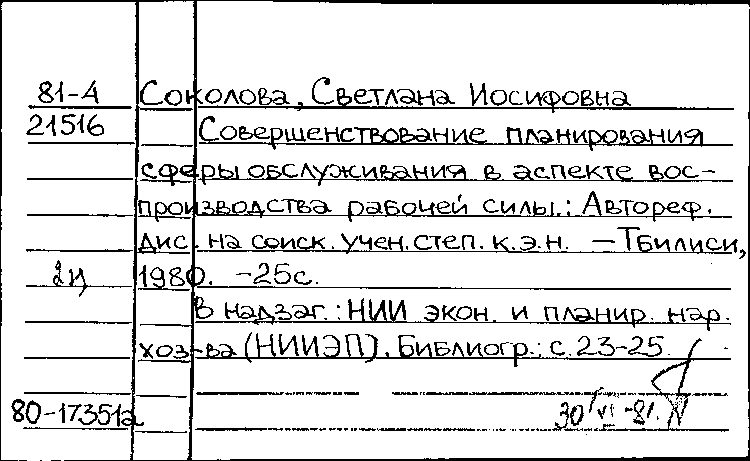 81-4 Соколова, Светлана Иосифовна
21516 Совершенствование планирования
сферы обслуживания в аспекте вос-
производства рабочей силы.: Автореф.
дис. на соиск. учен. степ. к.э.н. — Тбилиси,
2ц 1980. -25с.
В надзаг.: НИИ экон. и планир. нар.
хоз-ва (НИИЭП). Библиогр.: с. 23-25.
80-17351а 30/VI-81.